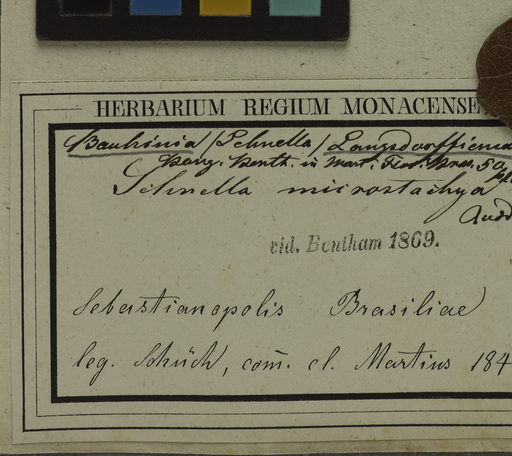 HERBARIUM REGIUM MONACENSE
Bauhinia (Schnella) Langsdorffiana
Bong. Benth. in Mart. Flor. Bras. 50
Schnella microstachya
Radd
vid. Bentham 1869.
Sebastianopolis Brasiliae
leg. Schüch, com̄. cl. Martius 184